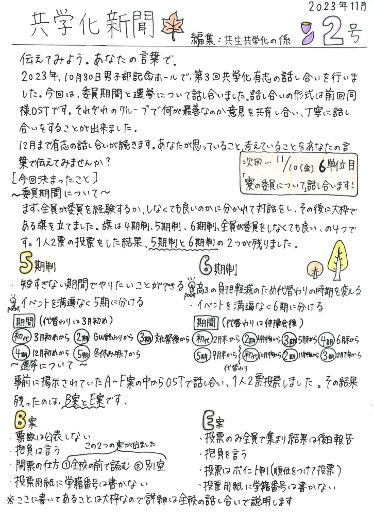 2023年11月
共学化新聞
編集:共生共学化の係
2号
伝えてみよう。あなたの言葉で。
2023年、10月30日男子部記念ホールで、第3回共学化有志の話し合いを行いま
した。今回は、委員期間と選挙について話し合いました。話し合いの形式は前回同
様OSTです。それぞれのグループで何が最善なのか意見を共有し合い、丁寧に話し
合いをすることが出来ました。
12月まで有志の話し合いが続きます。あなたが思っていること、考えていることをあなたの言
葉で伝えてみませんか?
次回… 11/10(金) 6単位目
「寮の委員について」話し合います!
[今回決まったこと]
〜委員期間について〜
まず、全員が委員を経験するか、しなくても良いのかに分かれて対話をし、その後に大枠で
ある案を立てました。案は4期制、5期制、6期制、全員が委員をしなくても良い、の4つで
す。1人2票の投票をした結果、5期制と6期制の2つが残りました。
5期制
・短すぎない期間でやりたいことができる
・イベントを満遍なく5期に分ける
期間 (代替わりは3月初め)
初代 3月初めから 2期 GW終わりから 3期 対抗競技後から
4期 12月初めから 5期 冬休み明けから
6期制
・高3の負担軽減のため代替わりの時期を変える
・イベントを満遍なく6期に分ける
期間
初代 2月末から 2期 4月 3期 5月から 4期 6月から
5期 9月
〜選挙について〜
事前に掲示されていたA〜F案の中からOSTで話し合い、1人2票投票しました。その結果
残ったのは、B案・E案です。
B案
・票数は公表しない
・抱負は言う
・開票の仕方 ①全校の前で読む ②別室
この2つの案が出ました
・投票用紙に学籍番号は書かない
E案
・投票のみ全員で集まり結果は後日報告
・抱負を言う
・投票はポイント制(順位をつけて投票)
・投票用紙に学籍番号は書かない
※ここに書いてあることは大枠なので詳細は全校の話し合いで説明します